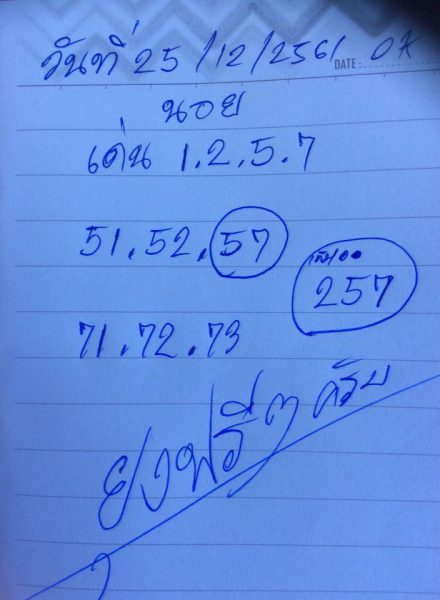 วันที่ 25/12/2561
DATE:
นอย
เด่น 1.2.5.7
51.52.57
257
71.72.73
ฟรีๆ ครับ